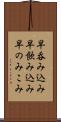 早呑み込み
早飲み込み
早のみこみ